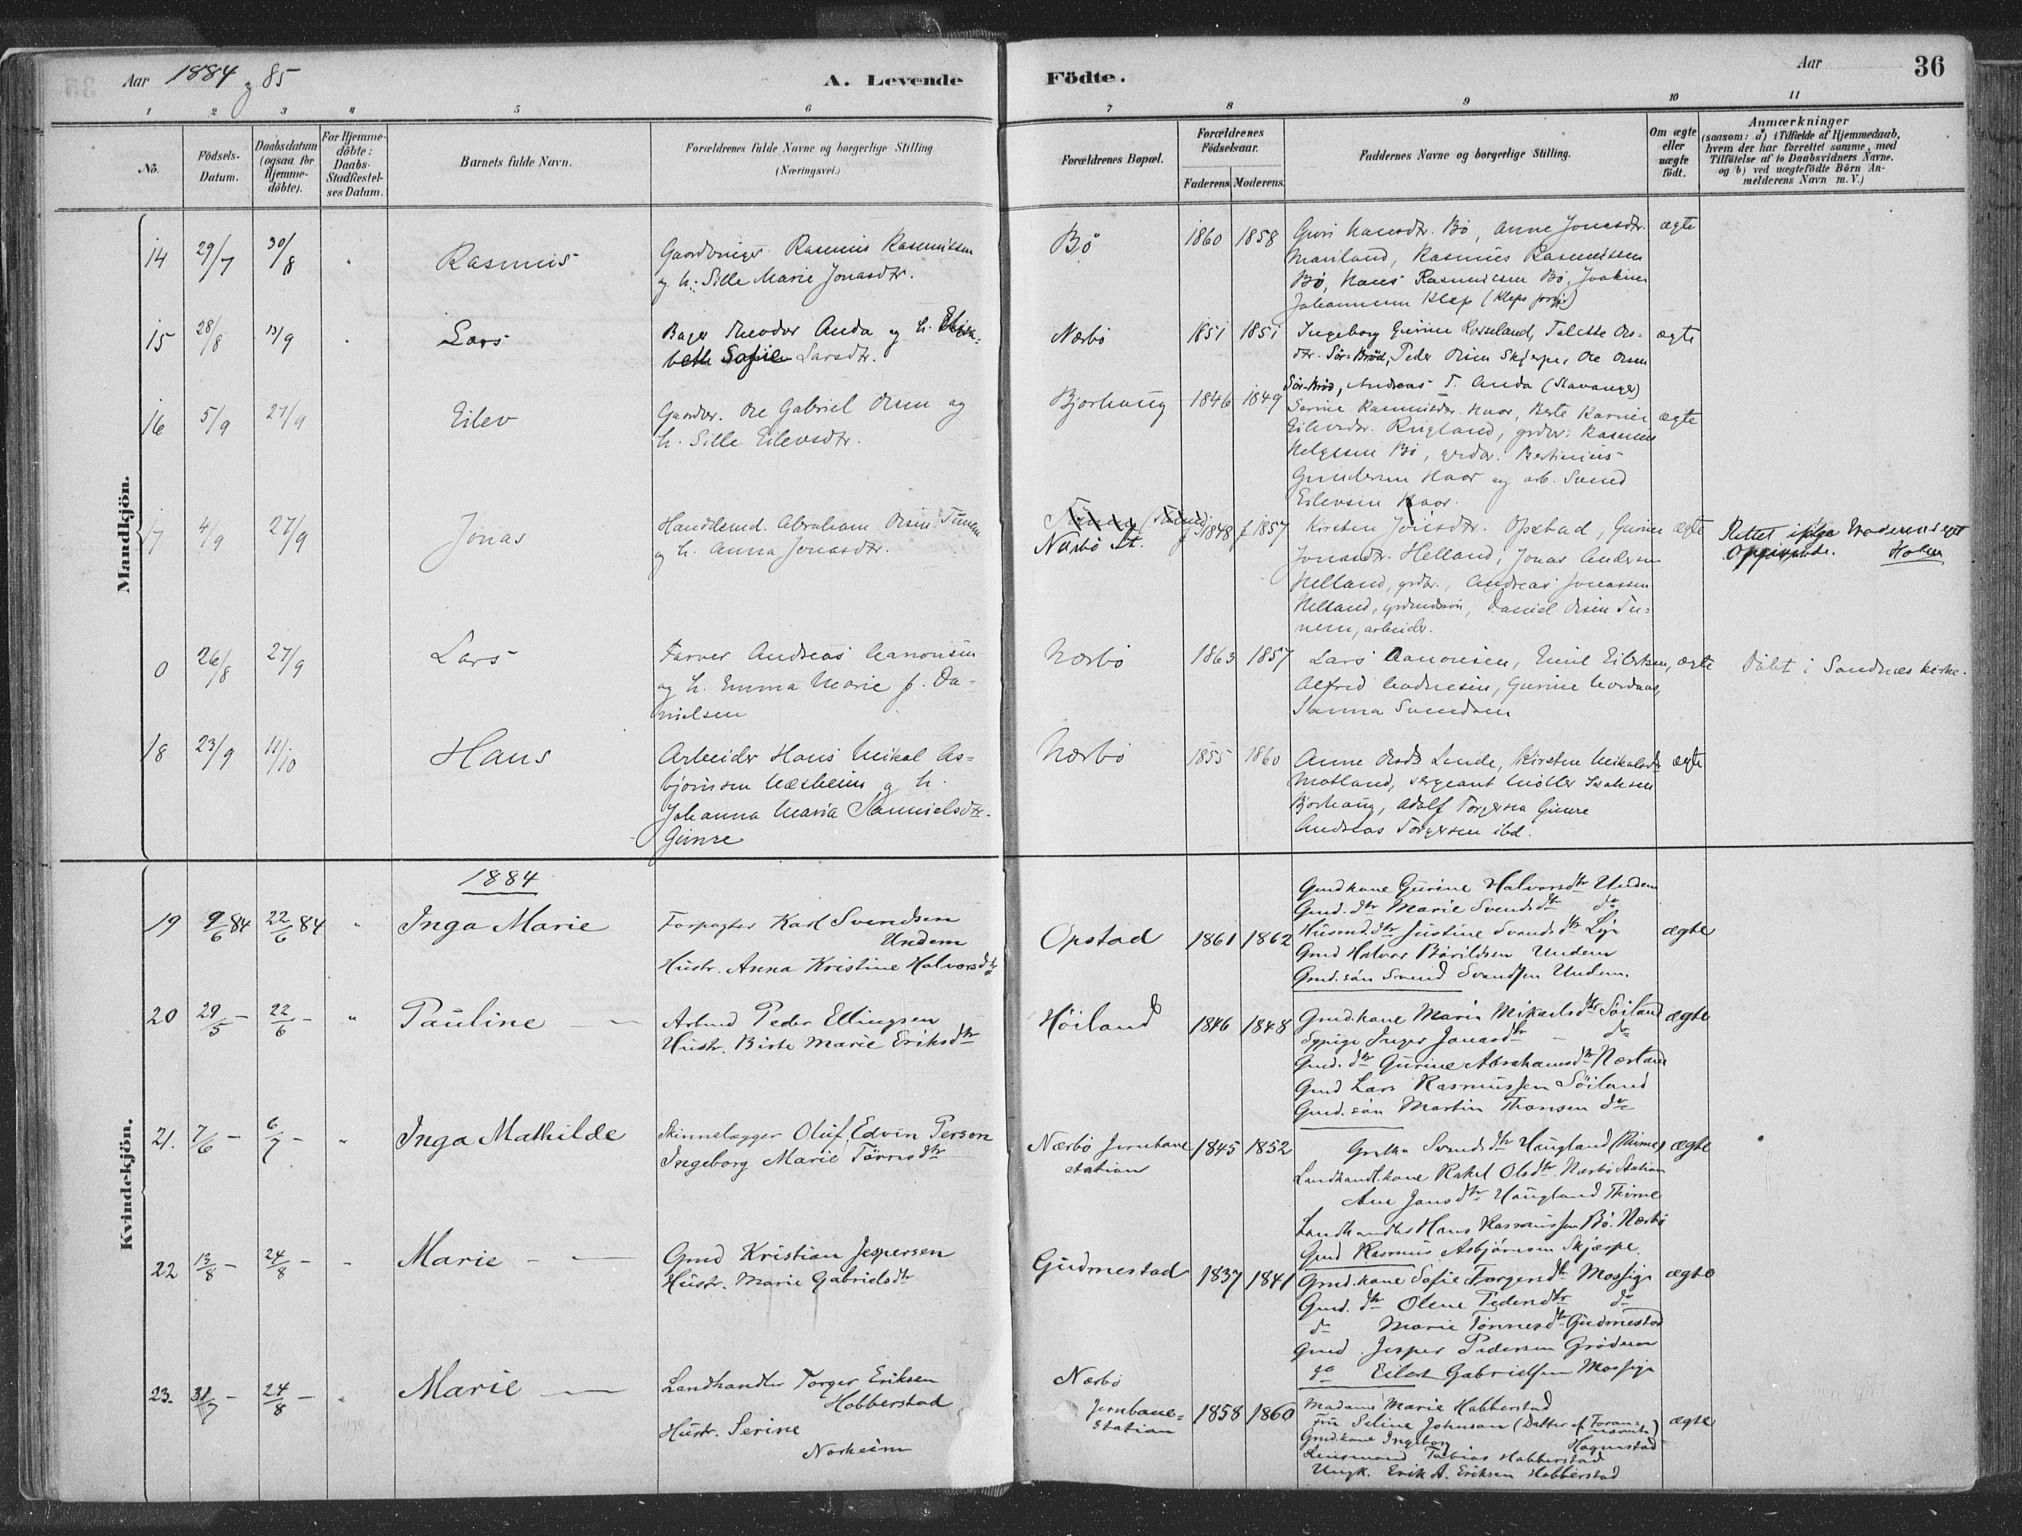 Aar 1884 og 85
A. Levende Födte.
Aar 36
1 2 3 4 5 6 7 8 9 10 11
No.
Födsels-Datum.
Daabsdatum (ogsaa for Hjemmedöbte).
For Hjemmedöbte: Daabs-Stadfæstelses Datum.
Barnets fulde Navn.
Forældrenes fulde Navne og borgerlige Stilling (Næringsvei.)
Forældrenes Bopæl.
Forældrenes Födselsaar.
Faderens Moderens
Faddernes Navne og borgerlige Stilling.
Om ægte eller uægte födt.
Anmærkninger
(saasom: a) i Tilfælde af Hjemmedaab, hvem der har forrettet samme, med Tilföielse af to Daabsvidners Navne, og b) ved uægtefödte Börn Anmelderens Navn m. V.)
Mandkjön.
14 29/7 30/8 Rasmus
Gaardbruger Rasmus Rasmussen
og h. Sille Marie Jonasdtr.
Bø 1860 1858
Guri Hansdtr. Bø, Anne Jonasdtr.
Mariland, Rasmus Rasmussen
Bø, Hans Rasmussen Bø, Joakim
Johannesen Klep (Kleps
ægte
15 28/8 13/9 Lars
Bager Theodor Anda og h. Elisa-
beth Sofie Larsdtr.
Nærbö 1851 1851
Ingeborg Gurine Rosseland, Talette Ols-
dtr. Sör-Bröd, Peder Olsen Skjerpe, Ole Olsen
Sör-Bröd, Andreas T. Anda (Stavanger)
ægte
16 5/9 27/9 Eilev
Gaardbr. Ole Gabriel Olsen og
h. Sille Eilevsdtr.
Bjorhaug 1846 1849
Serine Rasmusdtr. Haar, Berte Karine
Eilevsdtr. Ringland, grdbr. Rasmus
Helgesen Bø, grdbr. Bertinius
Gundersen Haar og arb. Svend
Eilevsen Haar.
ægte
17 4/9 27/9 Jonas
Handlemd. Abraham Olsen Tunem
og h. Anna Jonasdtr.
Nærbö St. f. 1848 f. 1857
Kirsten Jonasdtr. Opstad, Gurine
Jonasdtr. Helland, Jonas Andersen
Helland, grdbr., Andreas Jonassen
Helland, grdmdssön, Daniel Olsen Tu-
nem, arbeider.
ægte
Rettet ifølge Moderens eget
Opgivende. Holen
0 26/8 27/9 Lars
Farver Andreas Aanonsen
og h. Emma Marie f. Da-
nielsen
Nærbö 1863 1857
Lars Aanonsen, Emil Eilertsen,
Alfred Aadnesen, Gurine Nordaas,
Sanna Svendsen
ægte
Döbt i Sandnes kirke.
18 23/9 11/10 Hans
Arbeider Hans Mikal As-
bjørnsen Næsheim og h.
Johanna Maria Samuelsdtr.
Gimre
Nærbö 1855 1860
Anne Olsdtr Lende, Kirsten Mikalsdtr
Motland, sergeant Möller Isaksen
Bjorhaug, Adolf Torgersen Gimre
Andreas Torgersen ibd.
ægte
Kvindekjön.
1884
19 9/6 84 22/6 84 " Inga Marie
Forpagter Karl Svendsen
Undem
Hustr. Anna Kristine Halvorsdtr
Opstad 1861 1862
Gmd.kone Gurine Halvorsdtr Undem
Gmd. dtr Marie Svendsdtr do
Husmd.dtr Justine Svendsdtr Lye
Gmd Halvor Bårildsen Undem
Gmd.sön Svend Svendsen Undem.
ægte
20 29/5 – 22/6 – " Pauline
Arbmd Peder Ellingsen
Hustr. Birte Marie Eriksdtr
Höiland 1846 1848
Gmd.kone Maria Mikaelsdtr Söiland
Sypige Inger Jonasdtr – do
Gmd. dtr Gurine Abrahamsdtr Nærland
Gmd Lars Rasmussen Söiland
Gmd.sön Martin Thorsen do
ægte
21. 7/6 – 6/7 – " Inga Mathilde
Skinnelægger Oluf Edvin Person
Ingeborg Marie Tönnesdtr
Nærbö Jernbane
station 1845 1852
Grethe Svendsdtr Haugland (Thime)
Landhandl.kone Rakel Olsdtr Nærbö Station
Ane Jonsdtr Haugland Thime
Landhandler Hans Rasmussen Bö. Nærbö
Gmd Rasmus Asbjörnsen Skjærpe.
ægte
22 13/8 – 24/8 – " Marie
Gmd Kristian Jespersen
Hustr. Marie Gabrielsdtr
Gudmestad 1837 1841
Gmd.kone Sofie Torgersdtr Mossige
Gmd. dtr Olene Pedersdtr do
do Marie Tönnesdtr Gudmestad
Gmd. Jesper Pedersen Grödem
do Eilert Gabrielsen Mossige
ægte
23. 31/7 – 24/8 – " Marie
Landhandler Torger Eriksen
Hobberstad
Hustr. Serine
Norheim
Nærbö
Jernbane-
station 1858 1860
Madame Marie Hobberstad
Fru Seline Johnsen (Datter af
Gmd.kone Ingeborg Hognestad
Lensmand Tobias Hobberstad
Ungk. Erik A. Eriksen Hobberstad
ægte